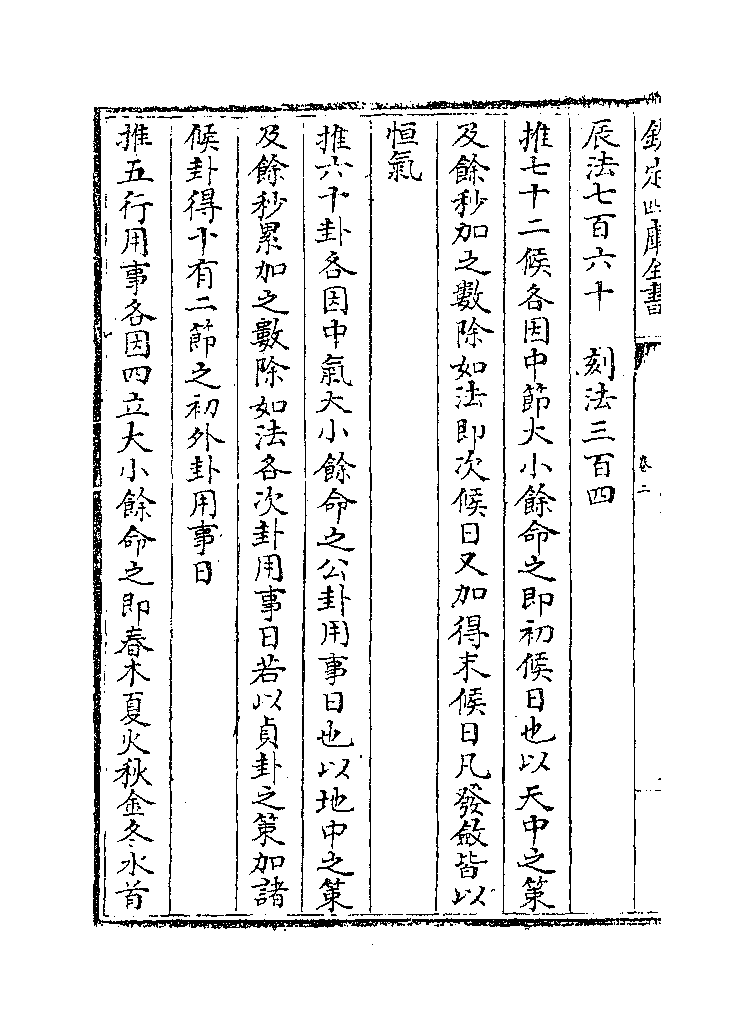 欽定四庫全書
卷二
辰法七百六十　刻法三百四
推七十二候各因中節大小餘命之即初候日也以天中之策
及餘秒加之數除如法即次候日又加得末候日凡發斂皆以
恒氣
推六十卦各因中氣大小餘命之公卦用事日也以地中之策
及餘秒累加之數除如法各次卦用事日若以貞卦之策加諸
候卦得十有二節之初外卦用事日
推五行用事各因四立大小餘命之即春木夏火秋金冬水首